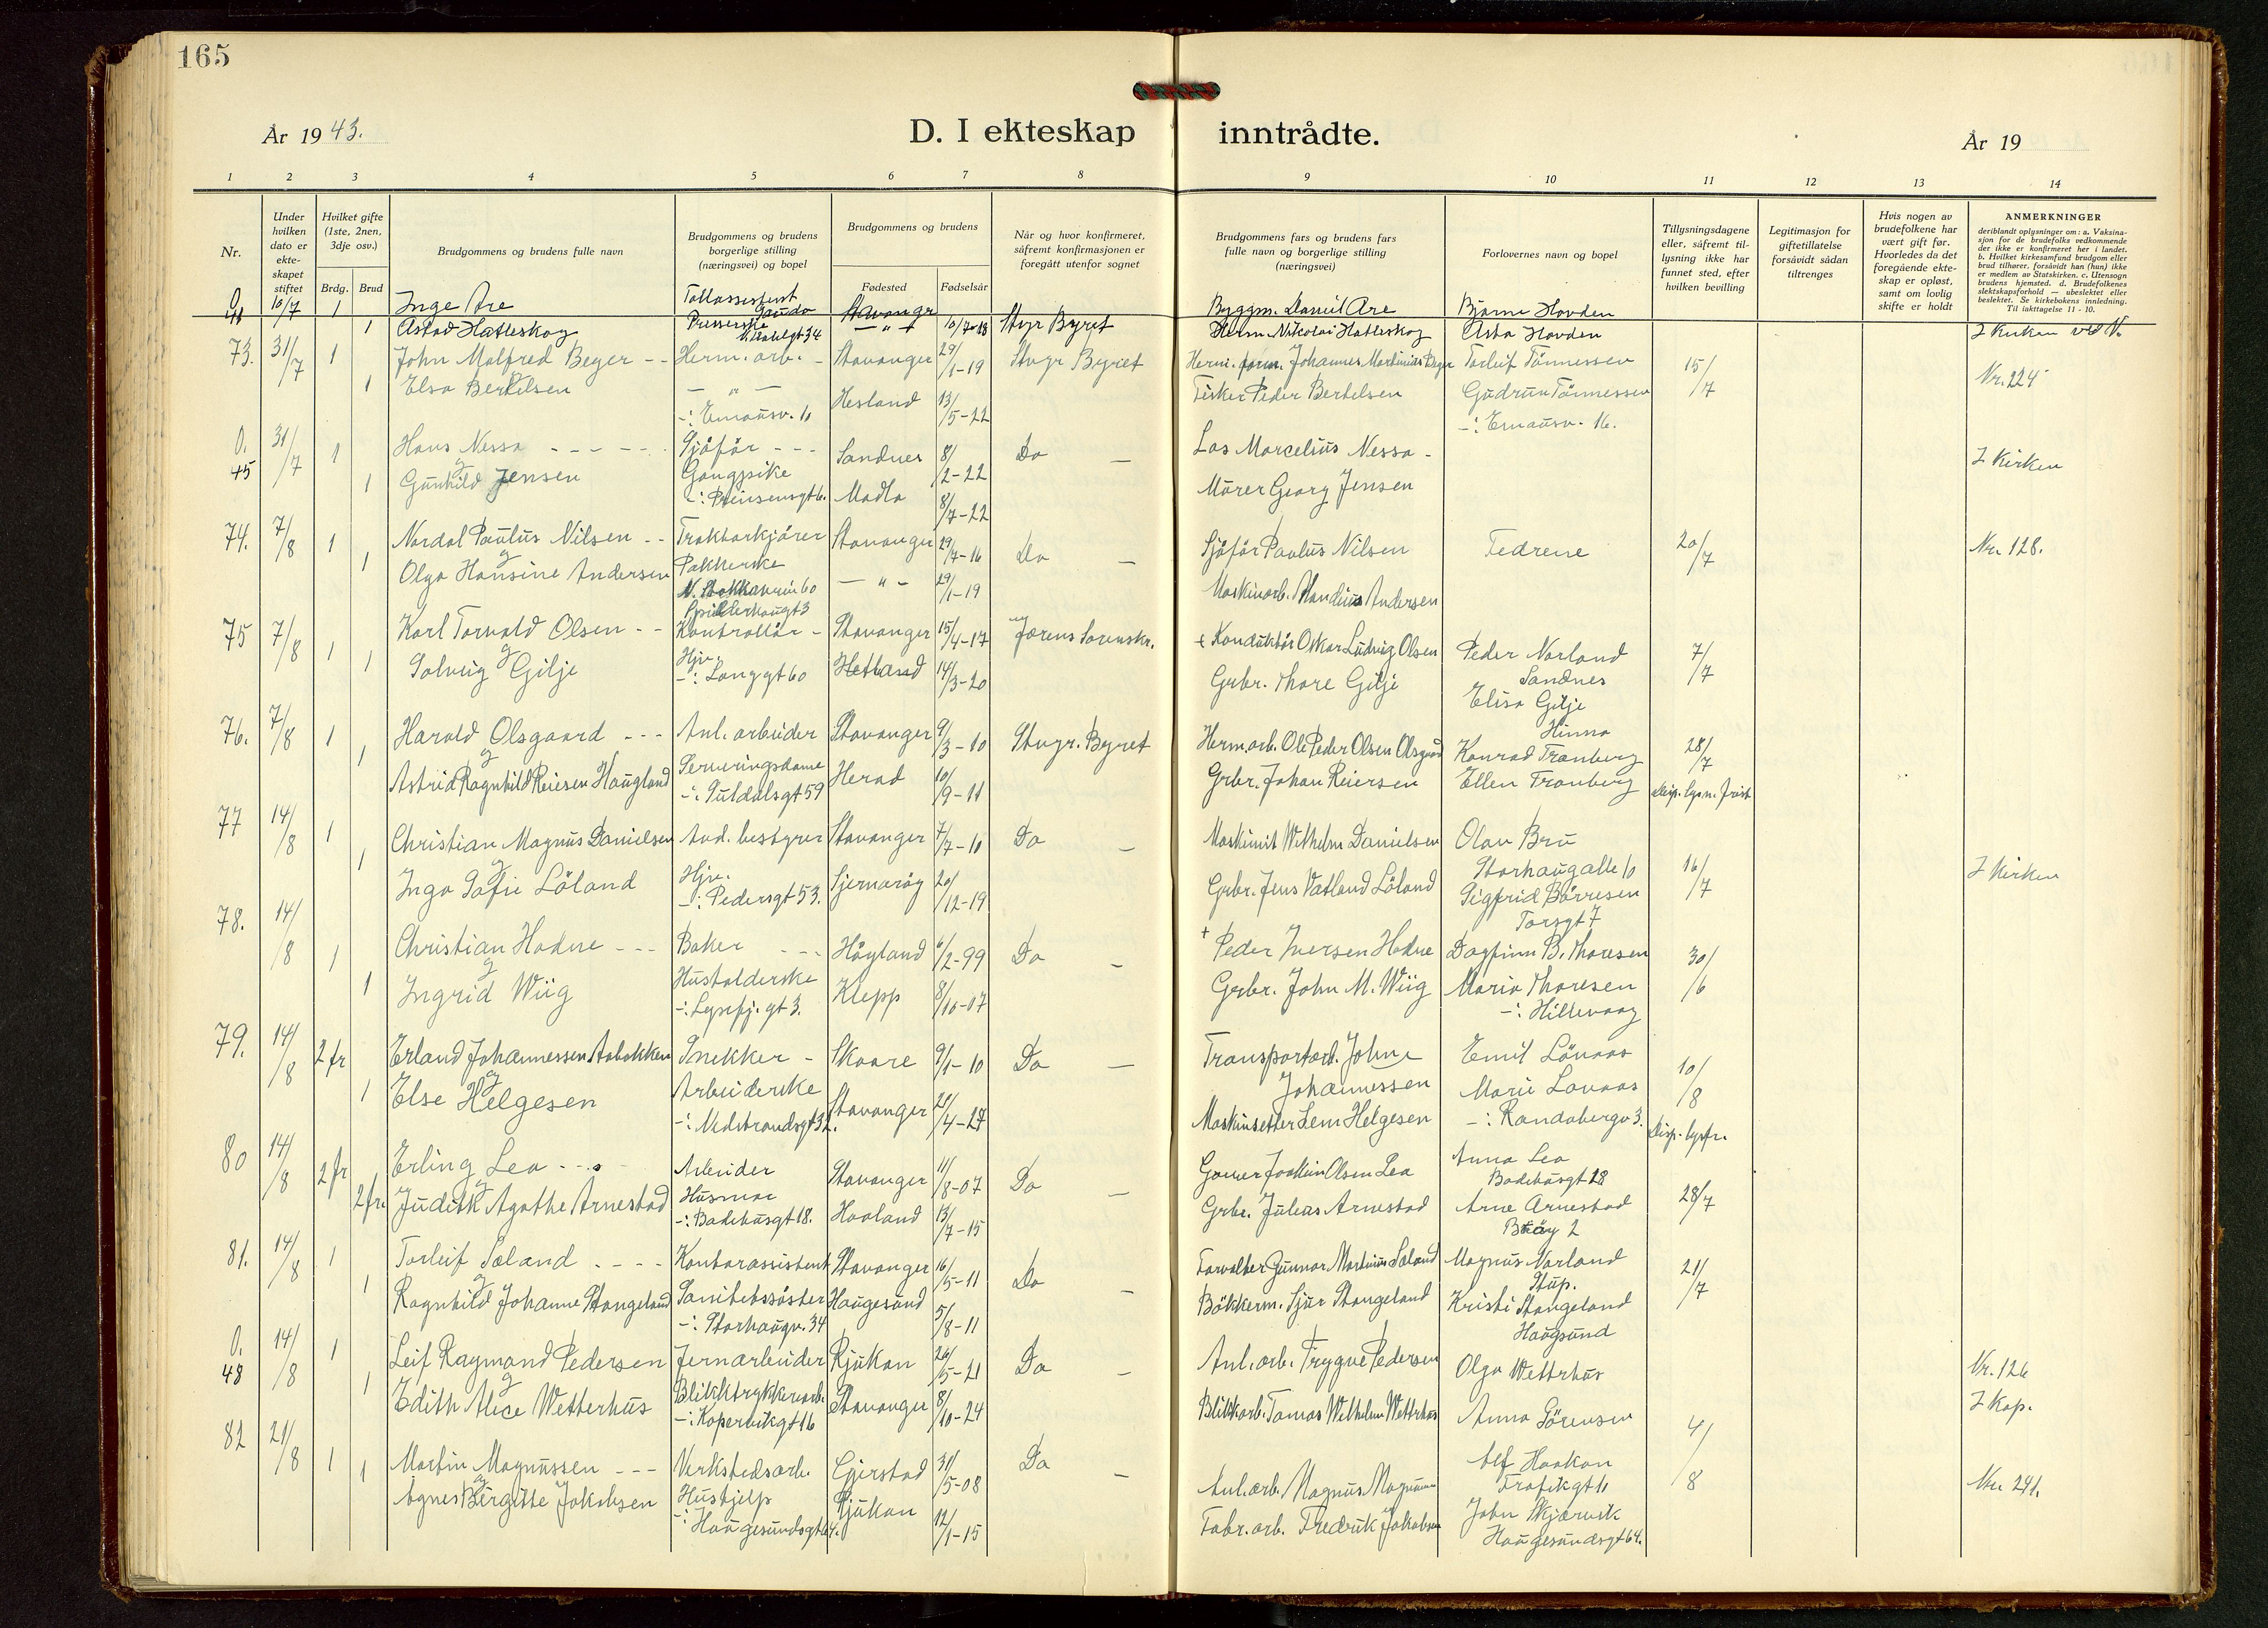 165
År 1943.
D. I ekteskap inntrådte.
År 19
1 2 3 4 5 6 7 8 9 10 11 12 13 14
Nr.
Under hvilken dato er ekte-skapet stiftet
Hvilket gifte (1ste, 2nen, 3dje osv.)
Brdg. Brud
Brudgommens og brudens fulle navn
Brudgommens og brudens borgerlige stilling (næringsvei) og bopel
Brudgommens og brudens
Fødested
Fødselsår
Når og hvor konfirmeret, såfremt konfirmasjonen er foregått utenfor sognet
Brudgommens fars og brudens fars fulle navn og borgerlige stilling (næringsvei)
Forlovernes navn og bopel
Tillysningsdagene eller, såfremt til-lysning ikke har funnet sted, efter hvilken bevilling
Legitimasjon for giftetillatelse forsåvidt sådan tiltrenges
Hvis nogen av brudefolkene har vært gift før. Hvorledes da det foregående ekte-skap er opløst, samt om lovlig skifte er holdt
ANMERKNINGER
deriblandt oplysninger om: a. Vaksina-sjon for de brudefolks vedkommende der ikke er konfirmeret her i landet. b. Hvilket kirkesamfund brudgom eller brud tilhører, forsåvidt han (hun) ikke er medlem av Statskirken. c. Utensogn brudens hjemsted. d. Brudefolkenes slektskapsforhold — ubeslektet eller beslektet. Se kirkebokens innledning. Til iakttagelse 11 - 10.
10/7 1 Inge Are Tollassistent Stavanger Byggm. Daniel Are Bjarne Hovden
1 Astad Hatleskog — " — 10/7-18 Stvgr Byret Herm. Nikolai Hatleskog Asta Hovden I Kirken
73. 31/7 1 John Malfred Beyer -- Herm. arb. - Stavanger 29/1-19 Stvgr Byret Herm. form. Johannes Martinias Beyer Torleif Tönnessen 15/7 Nr. 224
1 Elsa Bertelsen — " — Hesland 13/5-22 Fisker Peder Bertelsen Gudrun Tönnessen
-: Emausv. 16 -: Emausv. 16.
O. 45 31/7 1 Hans Nessa Sjåfør --- Sandnes 8/2-22 Do — Los Marcelius Nessa - I Kirken
1 g Gunhild Jensen Gangpike Madla 8/7-22 Murer Georg Jensen
-: Prinsensgt 6.
74. 7/8 1 Nordal Paulus Nilsen -- Traktorkjører Stavanger 29/7-16 Do — Sjåför Paulus Nilsen Fedrene 20/7 Nr. 128.
1 g Olga Hansine Andersen Pakkerske — " - 29/1-19 Maskinarb. Andersen
75 7/8 1 Karl Torvald Olsen -- Kontrollör - Stavanger 15/4-17 Jærens Sorenskr. Konduktör Oskar Ludvig Olsen Peder Norland 7/7
Sandnes
1 g Solveig Gilje Hjv. Hetland 14/3-20 Grbr. Thore Gilje Elisa Gilje
-: Langgt 60 Hinna
76. 7/8 1 Harald Olsgaard --- Anl. arbeider Stavanger 9/3-10 Stvgr. Byret Herm. arb. Ole Peder Olsen Olsgaard Konrad Tranberg 28/7
1 g Astrid Ragnhild Reiersen Haugland Serveringsdame Herad 10/9-11 Grbr. Johan Reiersen Ellen Tranberg
-: Suldalsgt 59
77 14/8 1 Christian Magnus Danielsen Avd. bestyrer Stavanger 7/7-10 Do — Maskinist Wilhelm Danielsen Olav Bru 16/7
Storhaugalle 10
1 g Inga Sofie Löland Hjv. Sjernaröy 20/12-19 Grbr. Jens Vatland Löland Sigfrid Börresen I Kirken
-: Pedersgt 53. Torsgt 7
78. 14/8 1 Christian Hodne --- Baker -- Höyland 6/2-99 Do — + Peder Iversen Hodne Dagfinn B. Thoresen 30/6
1 g Ingrid Wiig Husholderske Klepp 8/10-07 Grbr. John M. Wiig Maria Thoresen
-: Lysefj. gt 3. -: Hillevaag
79. 14/8 2 fr Erland Johannessen Aabakken Snekker - Skaare 9/1-10 Do — Transportarb. Johne Johannessen Emil Lönaas 10/8
1 g Else Helgesen Arbeiderske Stavanger 4-27 Maskinsetter Helgesen Marie Lönaas
-: Nedstrandsgt 32. -: Randabergv 3.
80 14/8 2 fr Erling Lea --- Arbeider Stavanger 11/8-07 Do — Garver Joakim Olsen Lea Anna Lea
Badehusgt 28
2 fr. g Judith Agathe Arnestad Husmor Haaland 13/7-15 Grbr. Julius Arnestad Arne Arnestad 28/7
-: Badehusgt 18.
81. 14/8 1 Torleif Sæland ---- Kontorassistent Stavanger 16/5-11 Do — Forvalter Gunnar Martinius Sæland Magnus Norland 21/7
1 g Ragnhild Johanne Stangeland Sanitetssöster Haugesund 5/8-11 Bökkerm. Sjur Stangeland Kristi Stangeland
-: Storhaugv. 34 Haugsund
O. 48 14/8 1 Leif Raymond Pedersen Jernarbeider Rjukan 5-21 Do — Anl. arb. Trygve Pedersen Olga Wetterhus Nr. 126
1 g Edith Alice Wetterhus Blikktrykkeriarb. Stavanger 8/10-24 Blikkarb. Tomas Wilhelm Wetterhus Anna Sörensen I Kap.
-: Kopervikgt 16
82 21/8 1 Martin Magnussen --- Verkstedsarb. Gjerstad 31/5-08 Do — Anl. arb. Magnus Alf Haakon 4/8 Nr. 241.
Trafikgt
1 og Agnes Bergitte Jakobsen Hushjelp Rjukan 12/1-15 Fabr. arb. Fredrik Jakobsen John Skjærvik
-: Haugesundsgt 64. Haugesundsgt 64.